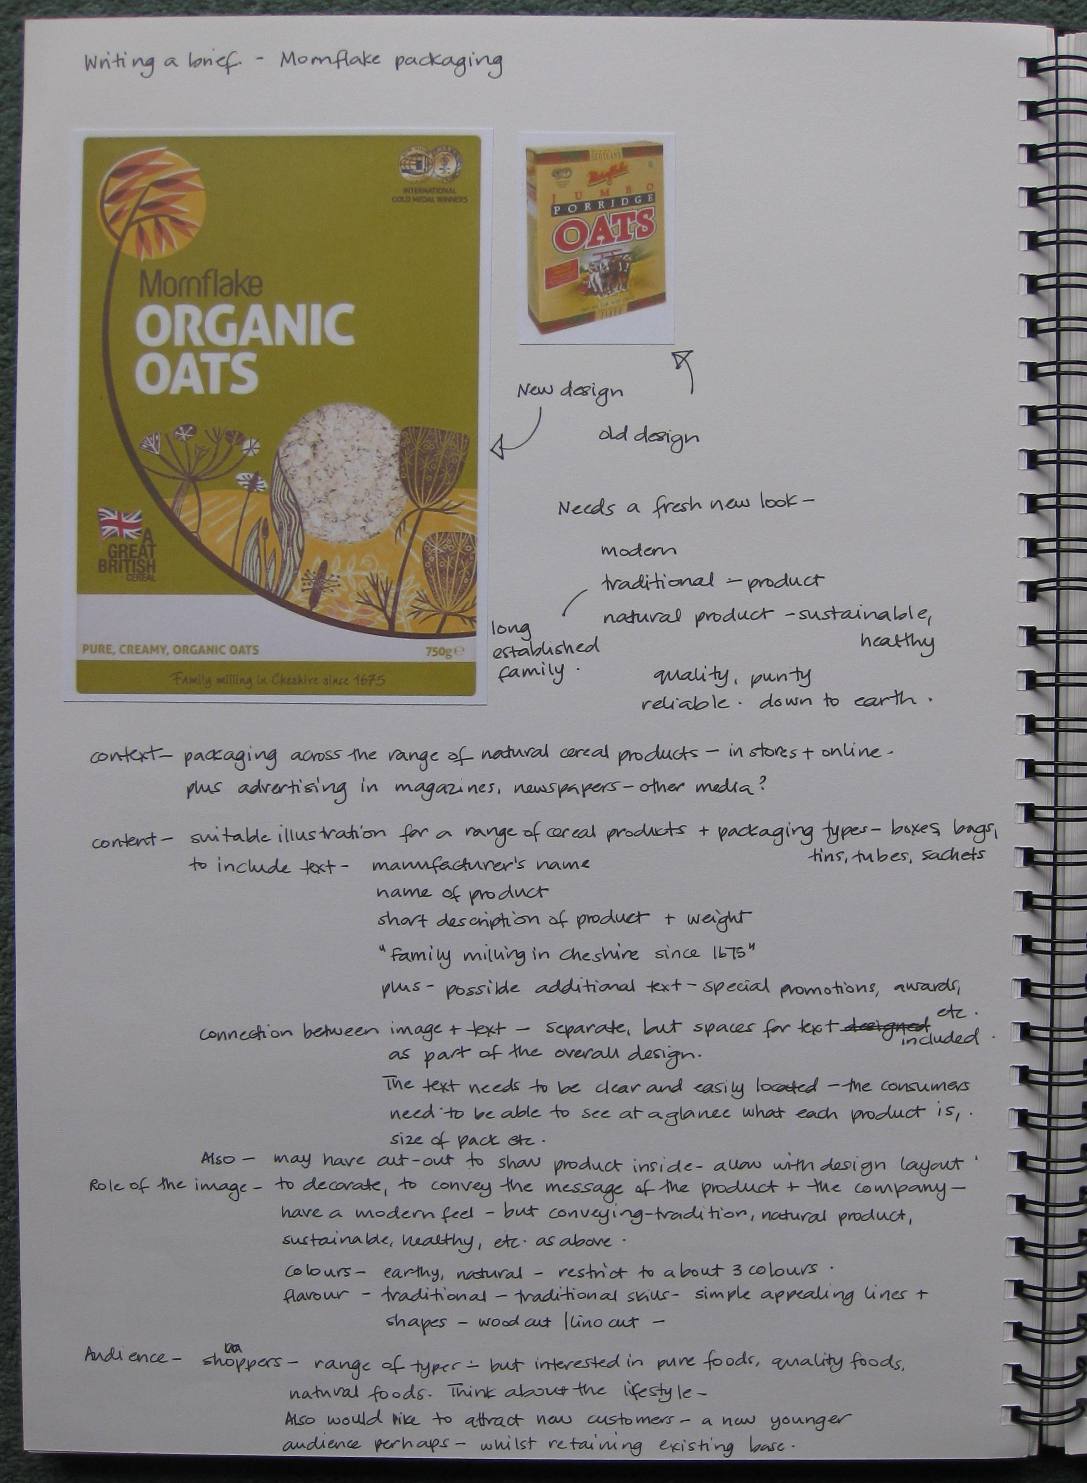 Writing a brief. - Mornflake packaging
INTERNATIONAL
GOLD MEDAL WINNERS
Mornflake
ORGANIC
OATS
A
GREAT
BRITISH
CEREAL
PURE, CREAMY, ORGANIC OATS 750g e
Family milling in Cheshire since 1675
Mornflake
JUMBO
PORRIDGE
OATS
New design
old design
Needs a fresh new look -
modern
traditional - product
natural product - sustainable,
healthy
long
established
family.
quality, purity
reliable. down to earth.
context - packaging across the range of natural cereal products - in stores + online.
plus advertising in magazines, newspapers - other media?
content - suitable illustration for a range of cereal products + packaging types - boxes, bags,
tins, tubes, sachets
to include text - manufacturer's name
name of product
short description of product + weight
"Family milling in Cheshire since 1675"
plus - possible additional text - special promotions, awards,
etc.
connection between image + text - separate, but spaces for text designed included.
as part of the overall design.
The text needs to be clear and easily located - the consumers
need to be able to see at a glance what each product is,.
size of pack etc.
Also - may have cut-out to show product inside - allow with design layout
Role of the image - to decorate, to convey the message of the product + the company -
have a modern feel - but conveying - tradition, natural product,
sustainable, healthy, etc. as above.
Colours - earthy, natural - restrict to about 3 colours.
flavour - traditional - traditional skills - simple appealing lines +
shapes - wood cut / lino cut -
Audience - UK shoppers - range of types - but interested in pure foods, quality foods,
natural foods. Think about the lifestyle -
Also would like to attract new customers - a new younger
audience perhaps - whilst retaining existing base.